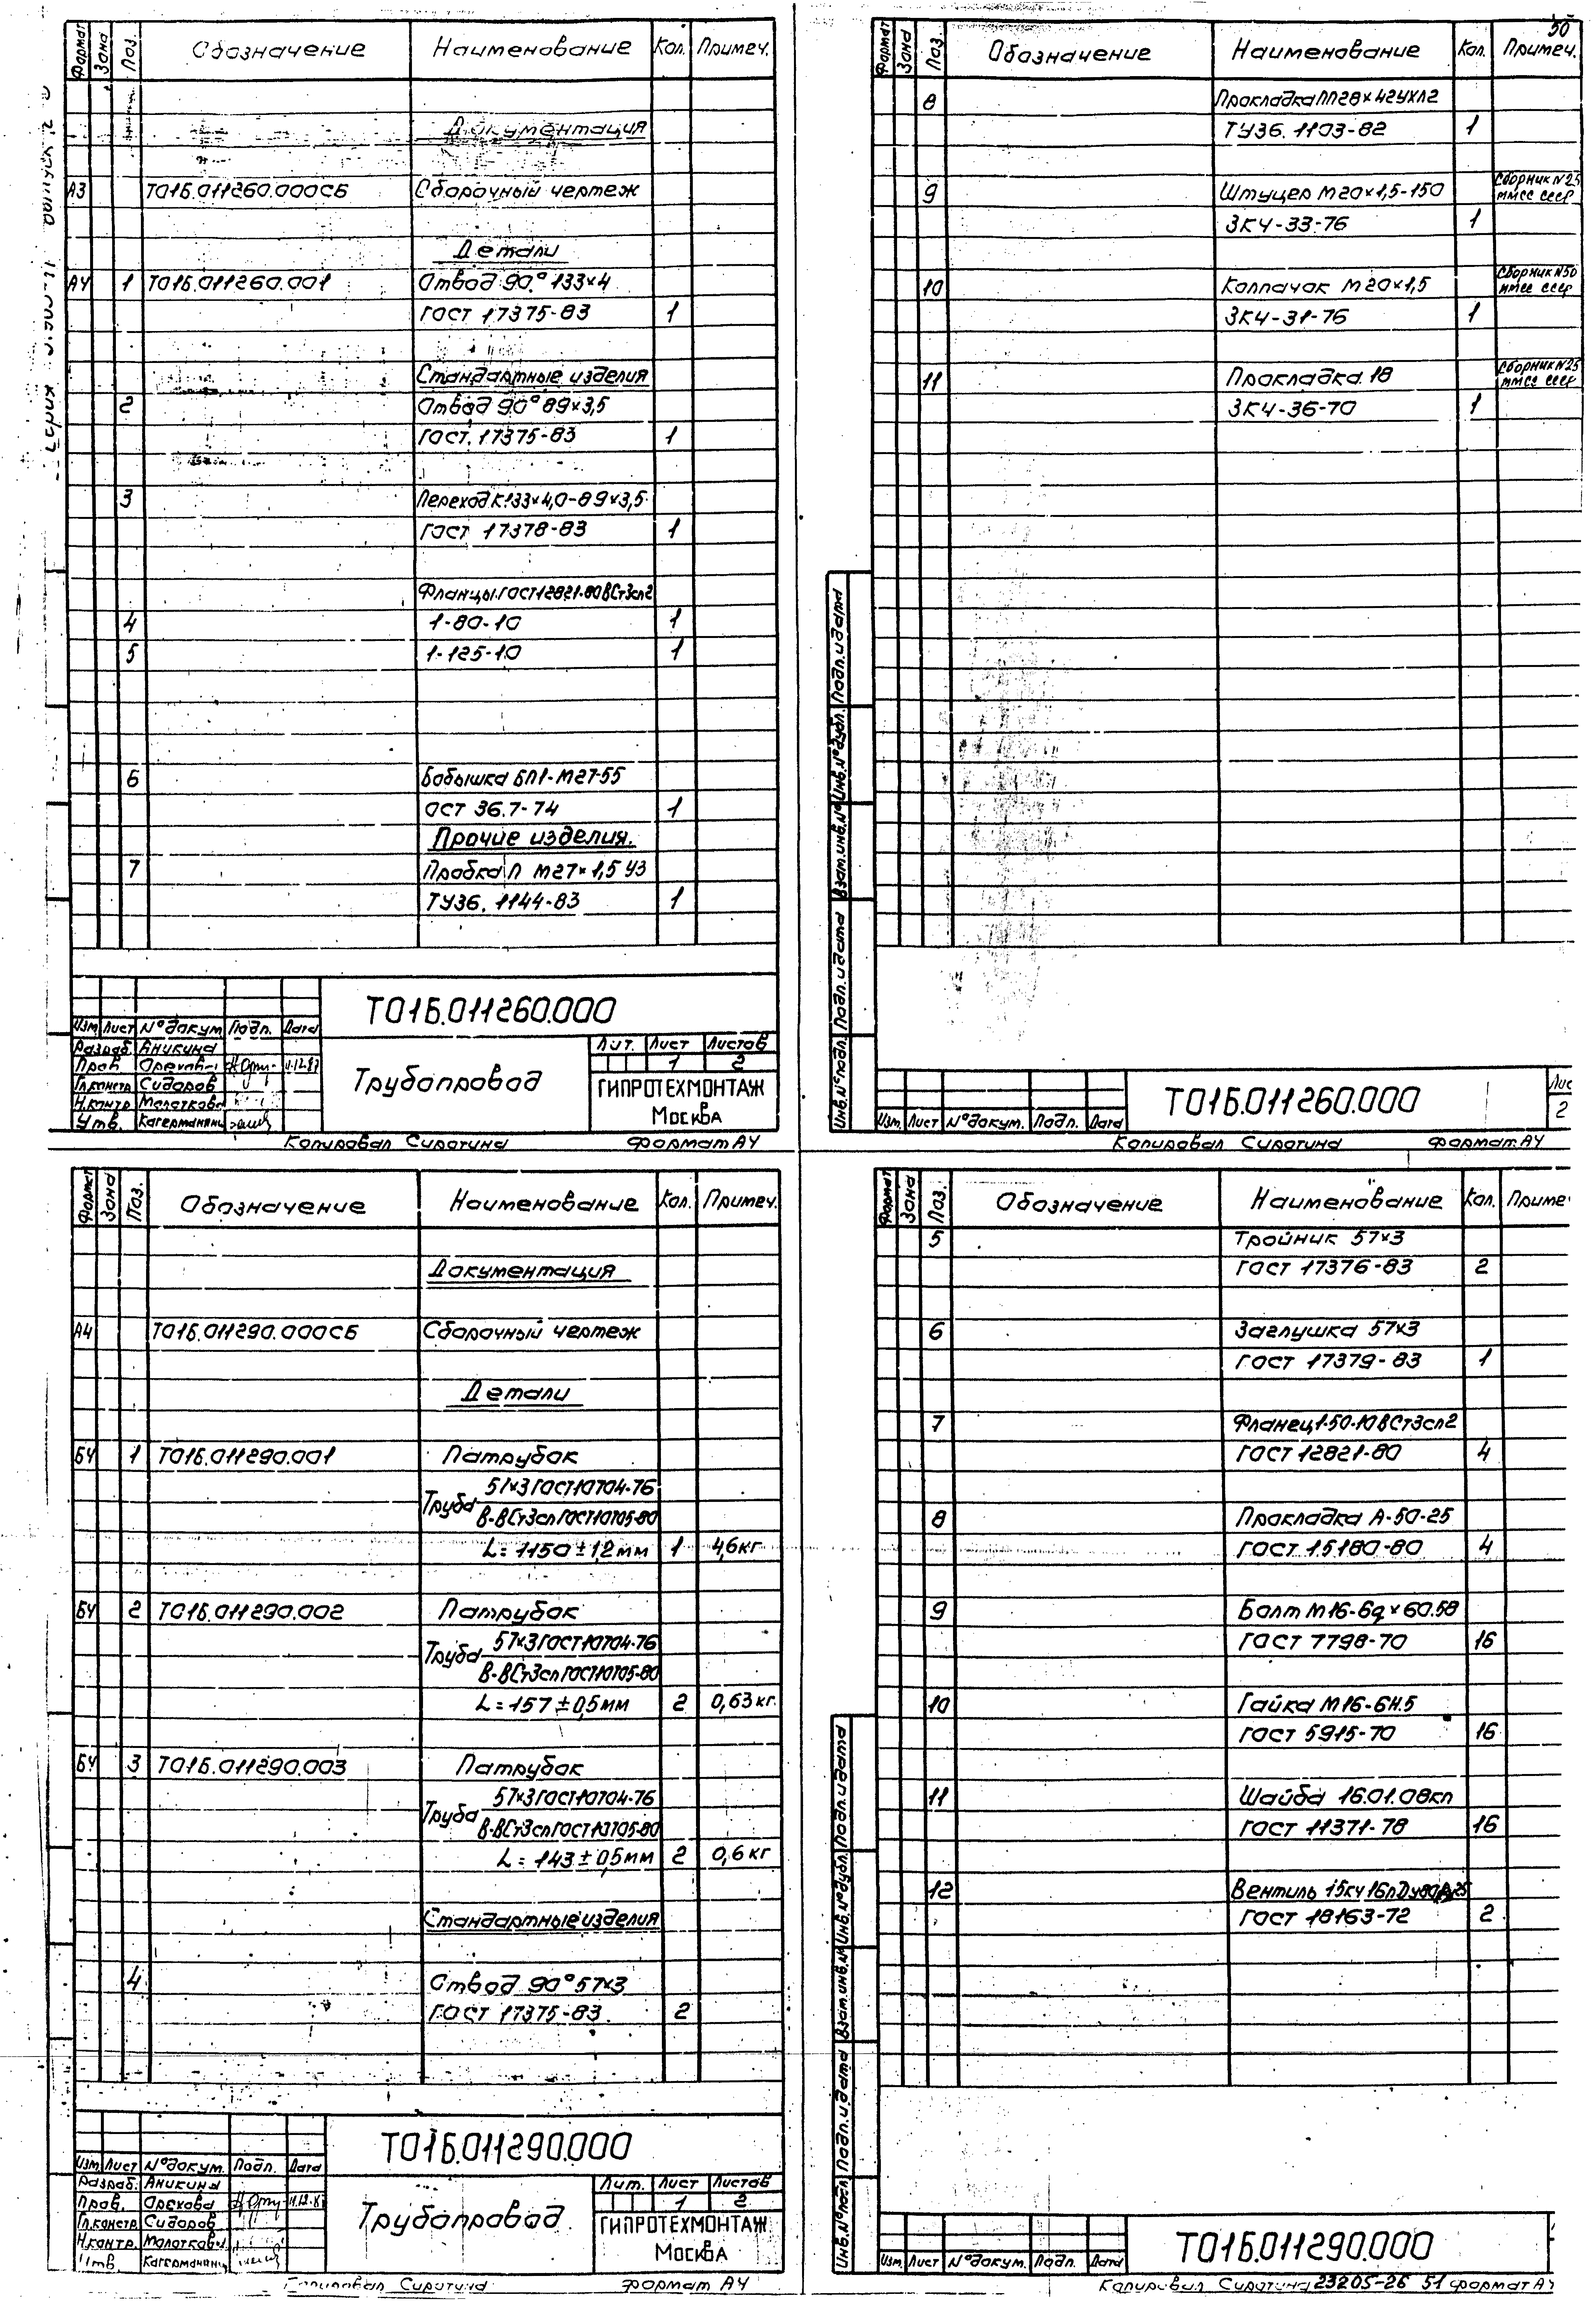 Формат Зона Поз. Обозначение Наименование Кол. Примеч.
Документация
А3 Т01Б.011260.000СБ Сборочный чертеж
Детали
А4 1 Т01Б.011260.001 Отвод 90° 133×4
ГОСТ 17375-83 1
Стандартные изделия
2 Отвод 90° 89×3,5
ГОСТ 17375-83 1
3 Переход К 133×4,0-89×3,5
ГОСТ 17378-83 1
Фланцы ГОСТ 12821-80 ВСт3сп2
4 1-80-10 1
5 1-125-10 1
6 Бобышка БП1-М27-55
ОСТ 36.7-74 1
Прочие изделия.
7 Пробка П М27×1,5 У3
ТУ36. 1144-83 1
Т01Б.011260.000
Изм. Лист № докум. Подп. Дата
Разраб. Аникина
Пров. Орехова 11.12.87
Гл.констр. Сидоров
Н.контр. Молоткова
Утв.
Трубопровод
Лит. Лист Листов
1 2
ГИПРОТЕХМОНТАЖ
Москва
Копировал Сиротина Формат А4
50
Формат Зона Поз. Обозначение Наименование Кол. Примеч.
8 Прокладка ПП28×42УХЛ2
ТУ36. 1103-82 1
9 Штуцер М20×1,5-150 Сборник №25
ЗК4-33-76 1 ММСС СССР
10 Колпачок М20×1,5 Сборник №50
ЗК4-31-76 1 ММСС СССР
11 Прокладка 18 Сборник №25
ЗК4-36-70 1 ММСС СССР
Инв.№ подл. Подп. и дата Взам.инв.№ Инв.№ дубл. Подп. и дата
Т01Б.011260.000
Изм. Лист № докум. Подп. Дата
2
Копировал Сиротина Формат А4
Формат Зона Поз. Обозначение Наименование Кол. Примеч.
Документация
А4 Т01Б.011290.000СБ Сборочный чертеж
Детали
БЧ 1 Т01Б.011290.001 Патрубок
Труба 57×3 ГОСТ 10704-76
В-ВСт3сп ГОСТ 10705-80
L=1150±1,2мм 1 4,6кг
БЧ 2 Т01Б.011290.002 Патрубок
Труба 57×3 ГОСТ 10704-76
В-ВСт3сп ГОСТ 10705-80
L=157±0,5мм 2 0,63кг.
БЧ 3 Т01Б.011290.003 Патрубок
Труба 57×3 ГОСТ 10704-76
В-ВСт3сп ГОСТ 10705-80
L=143±0,5мм 2 0,6кг
Стандартные изделия
4 Отвод 90° 57×3
ГОСТ 17375-83 2
Т01Б.011290.000
Изм. Лист № докум. Подп. Дата
Разраб. Аникина
Пров. Орехова
Гл.констр. Сидоров
Н.контр. Молоткова
Утв.
Трубопровод
Лит. Лист Листов
1 2
ГИПРОТЕХМОНТАЖ
Москва
Копировал Сиротина Формат А4
Формат Зона Поз. Обозначение Наименование Кол. Приме
5 Тройник 57×3
ГОСТ 17376-83 2
6 Заглушка 57×3
ГОСТ 17379-83 1
7 Фланец 1-50-10 ВСт3сп2
ГОСТ 12821-80 4
8 Прокладка А-50-25
ГОСТ 15180-80 4
9 Болт М16-6g×60.58
ГОСТ 7798-70 16
10 Гайка М16-6Н.5
ГОСТ 5915-70 16
11 Шайба 16.01.08кп
ГОСТ 11371-78 16
12 Вентиль 15кч16п
ГОСТ 18163-72 2
Инв.№ подл. Подп. и дата Взам.инв.№ Инв.№ дубл. Подп. и дата
Т01Б.011290.000
Изм. Лист № докум. Подп. Дата
Копировал Сиротина 23205-26 51 формат А4